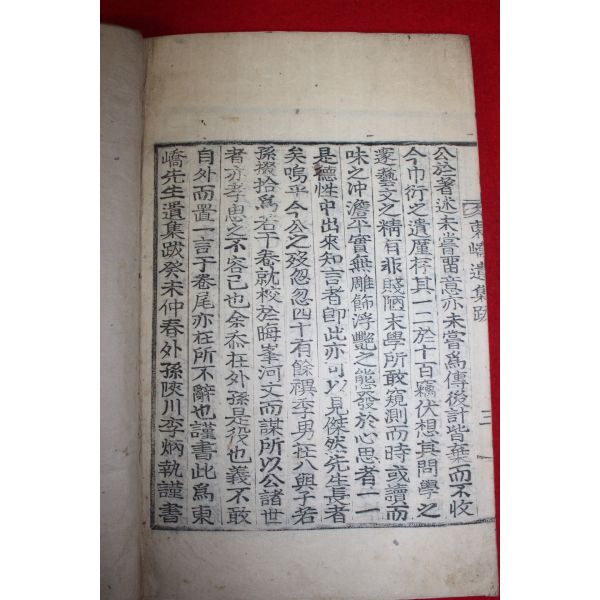 東嶠遺集跋
三
公於著述未嘗留意亦未嘗爲傳後計皆棄而不收
今巾衍之遺厪存其一二於十百竊伏想其問學之
邃藝文之精有非賤陋末學所敢窺測而時或讀而
味之冲澹平實無雕飾浮艶之態發於心思者一一
是德性中出來知言者卽此亦可以見傑然先生長者
矣嗚乎今公之歿忽忽四十有餘禩季男在八與子若
孫掇拾爲若干卷就校於晦峯河丈而謀所以公諸世
者亦孝思之不容已也余忝在外孫是役也義不敢
自外而置一言于卷尾亦在所不辭也謹書此爲東
嶠先生遺集跋癸未仲春外孫陜川李炳執謹書